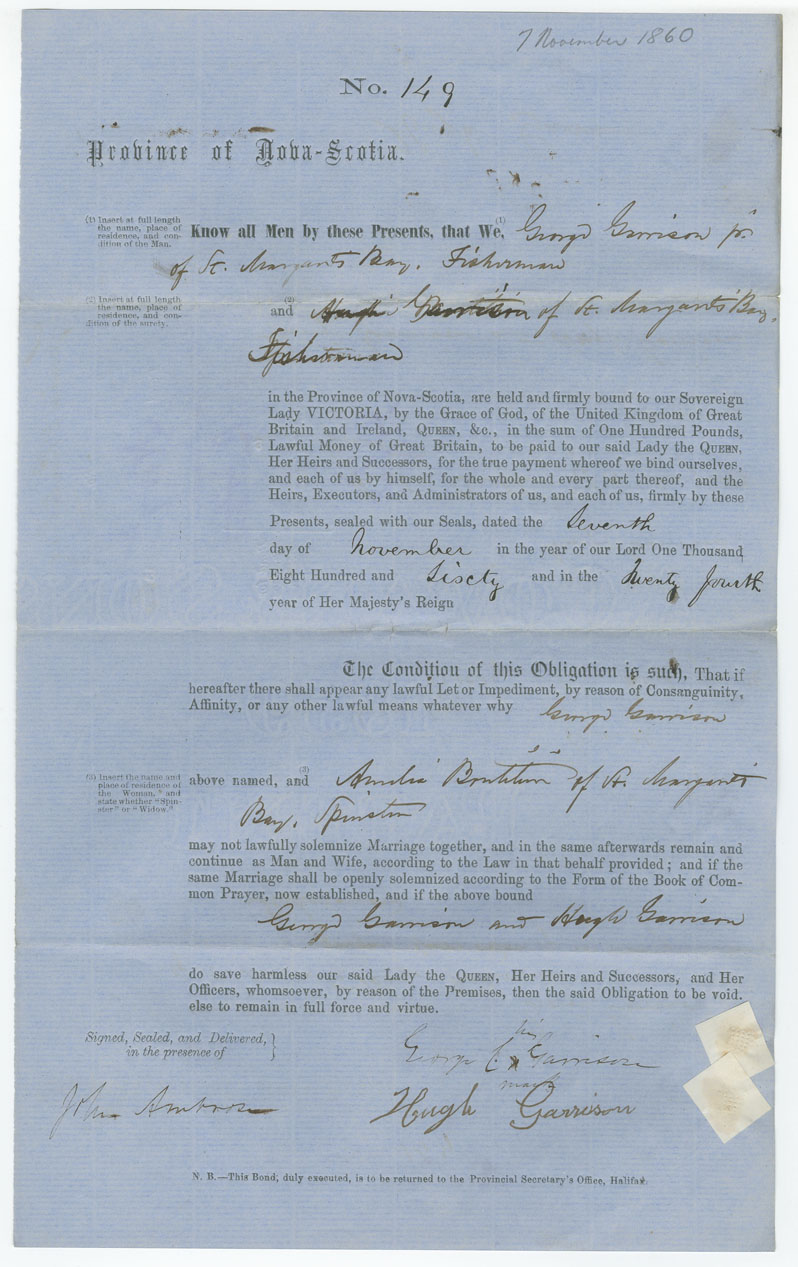 7 November 1860
No. 149
Province of Nova-Scotia.
(1) Insert at full length
the name, place of
residence, and con-
dition of the Man.
Know all Men by these Presents, that We, (1) George Garrison jr.
of St. Margarets Bay, Fisherman
(2) Insert at full length
the name, place of
residence, and con-
dition of the surety.
and (2) Hugh Garrison of St. Margarets Bay,
Fisherman
in the Province of Nova-Scotia, are held and firmly bound to our Sovereign
Lady VICTORIA, by the Grace of God, of the United Kingdom of Great
Britain and Ireland, QUEEN, &c., in the sum of One Hundred Pounds,
Lawful Money of Great Britain, to be paid to our said Lady the QUEEN,
Her Heirs and Successors, for the true payment whereof we bind ourselves,
and each of us by himself, for the whole and every part thereof, and the
Heirs, Executors, and Administrators of us, and each of us, firmly by these
Presents, sealed with our Seals, dated the Seventh
day of November in the year of our Lord One Thousand
Eight Hundred and Sixty and in the Twenty fourth
year of Her Majesty's Reign
The Condition of this Obligation is such, That if
hereafter there shall appear any lawful Let or Impediment, by reason of Consanguinity,
Affinity, or any other lawful means whatever why George Garrison
(3) Insert the name and
place of residence of
the Woman," and
state whether "Spin-
ster" or "Widow."
above named, and (3) Amelia Boutilier of St. Margarets
Bay, Spinster
may not lawfully solemnize Marriage together, and in the same afterwards remain and
continue as Man and Wife, according to the Law in that behalf provided; and if the
same Marriage shall be openly solemnized according to the Form of the Book of Com-
mon Prayer, now established, and if the above bound
George Garrison and Hugh Garrison
do save harmless our said Lady the QUEEN, Her Heirs and Successors, and Her
Officers, whomsoever, by reason of the Premises, then the said Obligation to be void.
else to remain in full force and virtue.
Signed, Sealed, and Delivered,
in the presence of
his
George x Garrison
mark
John Ambrose
Hugh Garrison
N. B.—This Bond, duly executed, is to be returned to the Provincial Secretary's Office, Halifax.